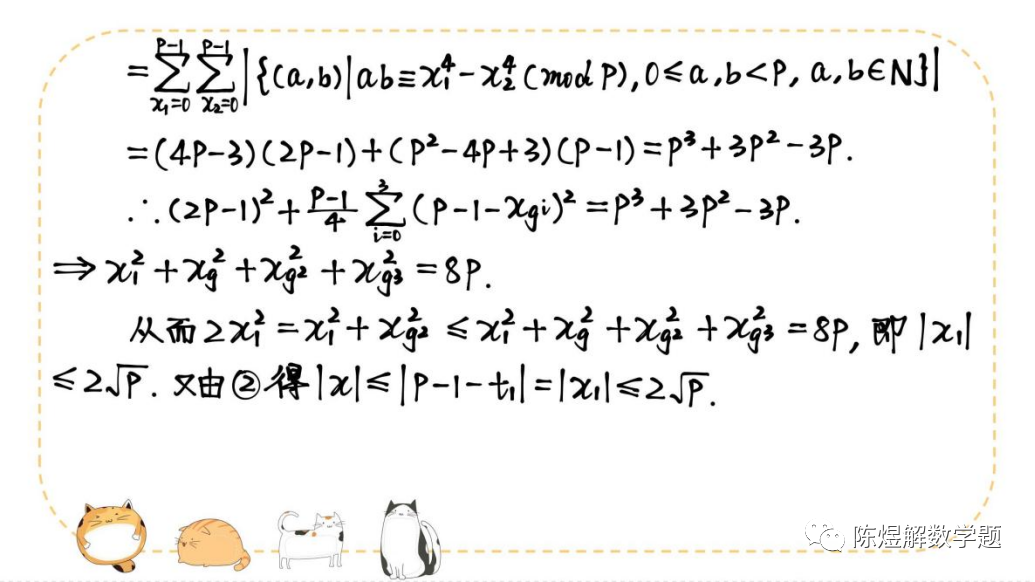 =∑_{x₁=0}^{P-1}∑_{x₂=0}^{P-1}|{(a,b)|ab≡x₁⁴-x₂⁴(mod P),0≤a,b<P, a,b∈N}|
=(4P-3)(2P-1)+(P²-4P+3)(P-1)=P³+3P²-3P.
∴(2P-1)²+\frac{P-1}{4}∑_{i=0}^{3}(P-1-x_{gi})²=P³+3P²-3P.
⇒x₁²+x_g²+x_{g²}²+x_{g³}²=8P.
从而2x₁²=x₁²+x_{g²}²≤x₁²+x_g²+x_{g²}²+x_{g³}²=8P,即|x₁|
≤2√P.又由②得|x|≤|P-1-t₁|=|x₁|≤2√P.
陈煜解数学题